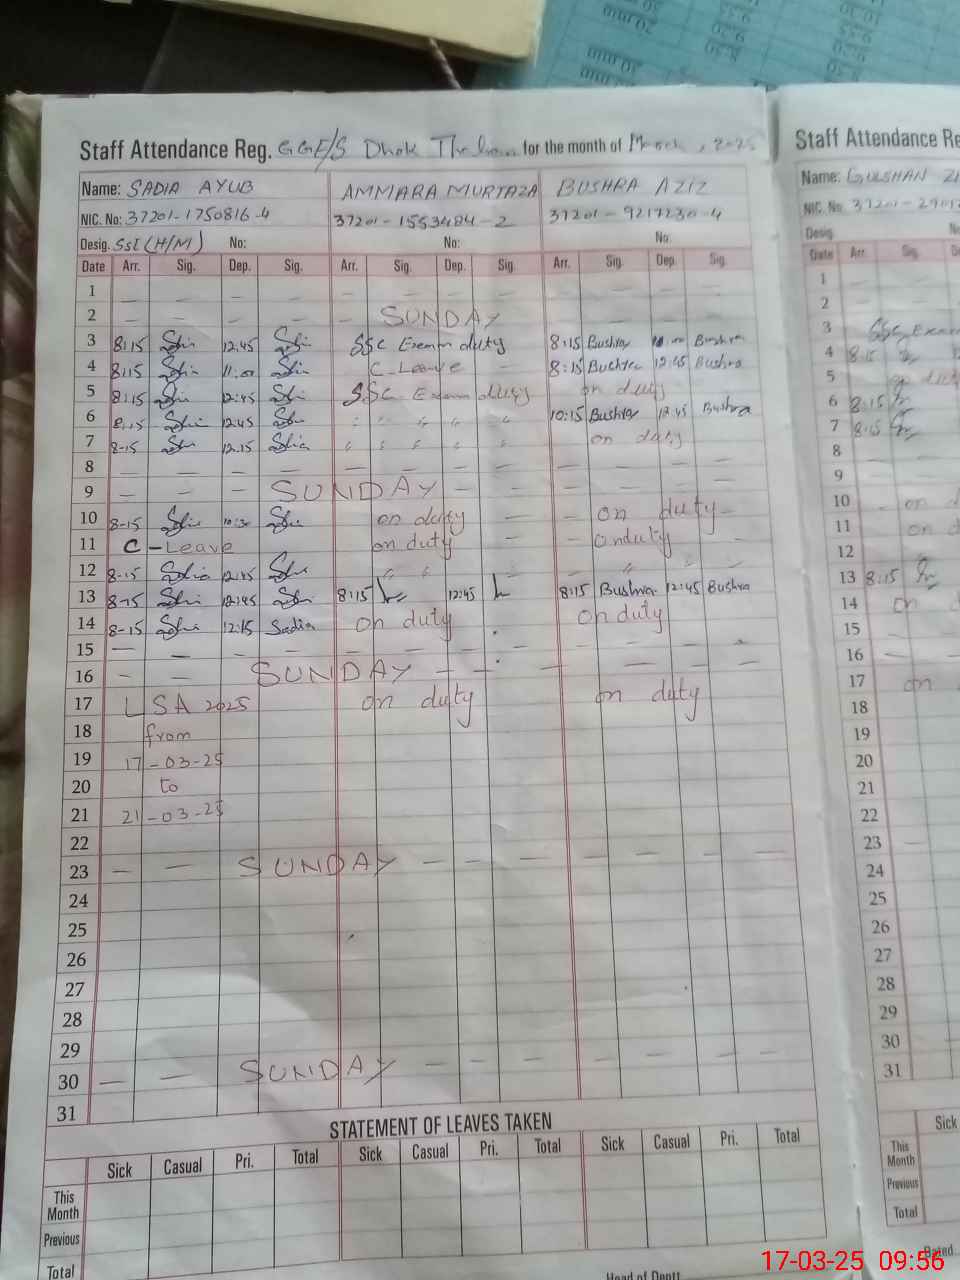 Staff Attendance Reg. GGE/S Dhok for the month of March, 2025
Name: SADIA AYUB AMMARA MURTAZA BUSHRA AZIZ
NIC. No: 37201-1750816-4 37201-1553484-2 37201-9217230-4
Desig. SSE (H/M) No: No: No:
Date Arr. Sig. Dep. Sig. Arr. Sig. Dep. Sig. Arr. Sig. Dep. Sig.
1 — — — — — — — —
2 — — — — SUNDAY
3 8:15 12:45 SSC Exam duty 8:15 Bushra Bushra
4 8:15 11:00 C-Leave 8:15 Bushra 12:45 Bushra
5 8:15 12:45 SSC Exam duty on duty
6 8:15 12:45 " " " " 10:15 Bushra 12:45 Bushra
7 8-15 12:15 " " " " on duty
8 — — — — — — — —
9 — — — SUNDAY — — — — —
10 8-15 10:30 on duty on duty
11 C-Leave on duty on duty
12 8-15 Sadia 12:45 " " "
13 8-15 12:45 8:15 12:45 8:15 Bushra 12:45 Bushra
14 8-15 12:15 Sadia on duty on duty
15 — — — — — — — —
16 — — SUNDAY — — — — — —
17 LSA 2025 on duty on duty
18 from
19 17-03-25
20 to
21 21-03-25
22
23 — — SUNDAY — — — — — — —
24
25
26
27
28
29
30 — — SUNDAY — — — — — — —
31
STATEMENT OF LEAVES TAKEN
Sick Casual Pri. Total Sick Casual Pri. Total Sick Casual Pri. Total
This Month
Previous
Total
Head of Deptt.
Staff Attendance Re
Name: GULSHAN
NIC. No. 37201-
Desig.
Date Arr. Sig.
1
2
3 SSC Exam
4 8:15
5 on duty
6 8:15
7 8:15
8
9
10 on d
11 on d
12
13 8:15
14 on d
15
16 — —
17 on
18
19
20
21
22
23 —
24
25
26
27
28
29
30
31
Sick
This Month
Previous
Total
Dated
17-03-25 09:56